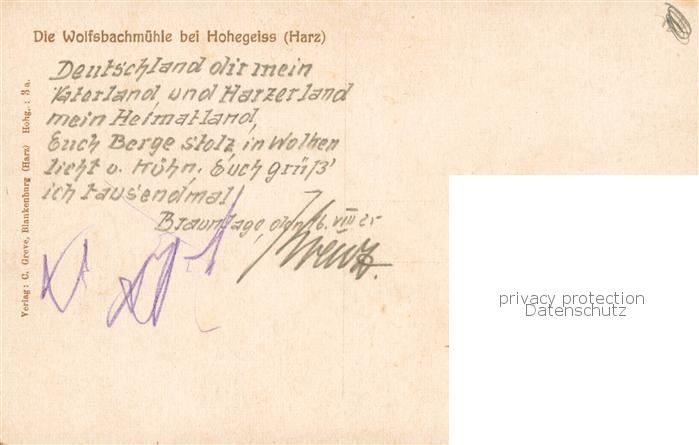 Die Wolfsbachmühle bei Hohegeiss (Harz)
Deutschland dir mein
Vaterland, und Harzerland
mein Heimatland,
Euch Berge stolz, in Wolken
licht u. kühn, Euch grüß'
ich tausendmal!
Braunlage, den 16. VIII 25
Verlag: C. Greve, Blankenburg (Harz) Hohg.: 3 a.
privacy protection
Datenschutz